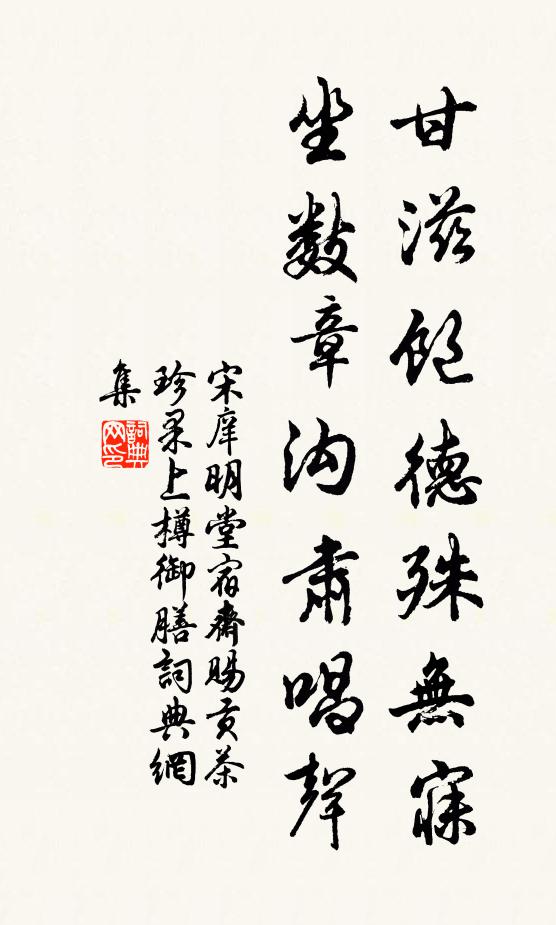 甘滋飽德殊無寐
坐數章沟肅唱聲
宋庠明堂宿齋賜貢茶
珍果上樽御膳詞典網
集
詞典
网印